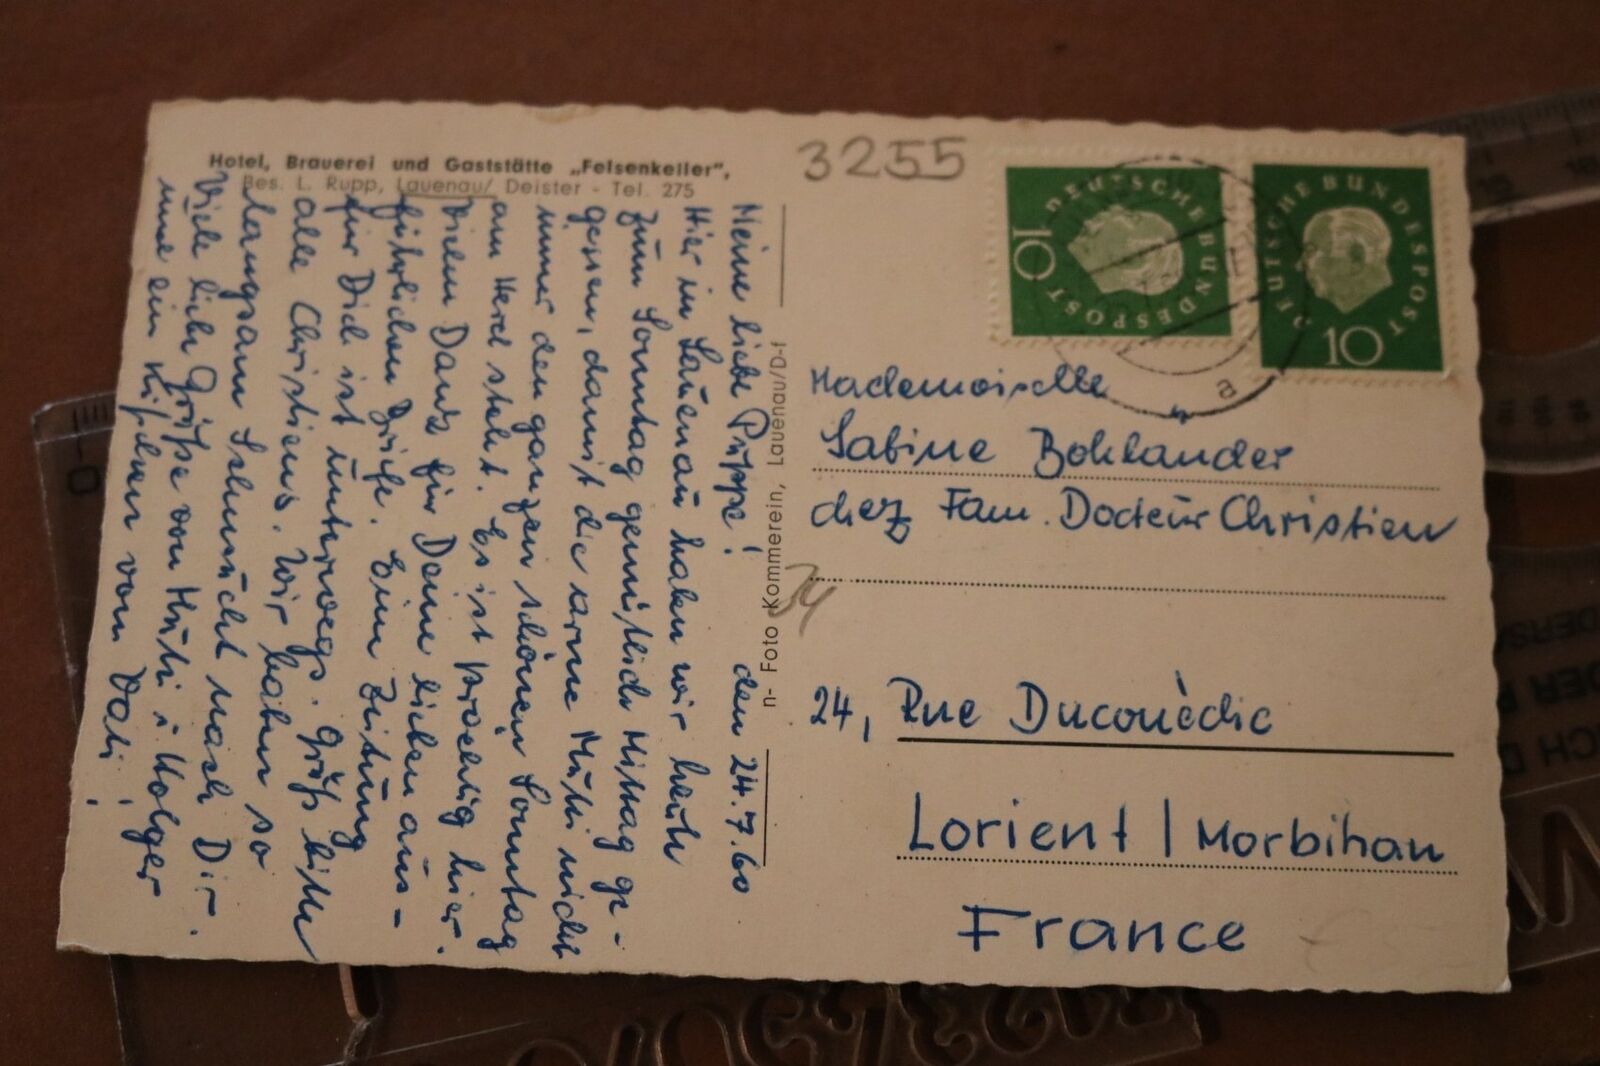 Hotel, Brauerei und Gaststätte „Felsenkeller",
Bes. L. Rupp, Lauenau/ Deister - Tel. 275
3255
Meine liebe Puppe! den 24.7.60
Hier in Lauenau haben wir heute
zum Sonntag gemütlich Mittag ge-
gessen, damit die arme Mutti nicht
immer den ganzen schönen Sonntag
am Herd steht. Es ist prächtig hier.
Vielen Dank für Deine lieben aus-
führlichen Briefe. Eine Zeitung
für Dich ist unterwegs. Grüß bitte
alle Christiens. Wir haben so
langsam Sehnsucht nach Dir.
Viele liebe Grüße von Mutti u. Holger
und ein Küßchen von Vati!
n- Foto Kommerein, Lauenau/D-1
DEUTSCHE BUNDESPOST
10
DEUTSCHE BUNDESPOST
10
a
Mademoiselle
Sabine Bohlander
chez Fam. Docteur Christien
24, Rue Ducouëdic
Lorient / Morbihan
France